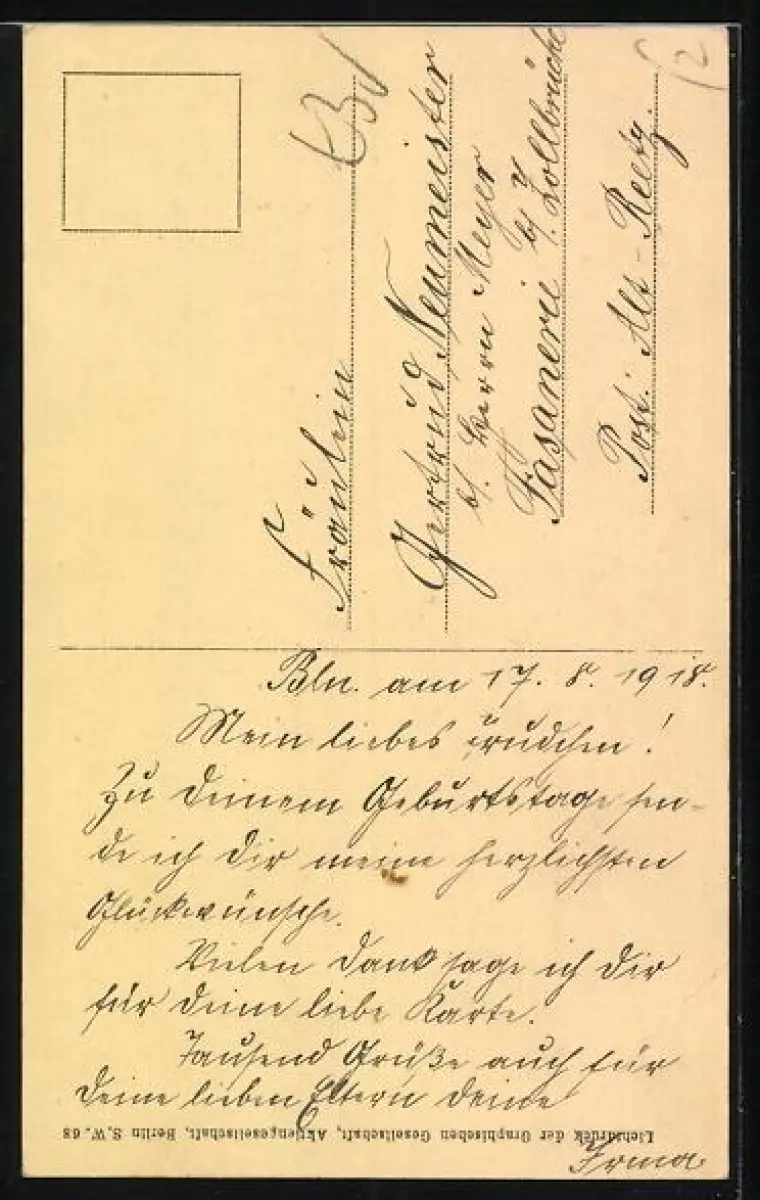 Fräulein
Gertrud Neumeister
b/. Herrn Meyer
Fasanerie b/. Zollbrücke
Post: Alt-Reetz.
Bln. am 17. 8. 1918.
Mein liebes Trudchen!
Zu Deinem Geburtstage sen-
de ich Dir meine herzlichsten
Glückwünsche.
Vielen Dank sage ich Dir
für Deine liebe Karte.
Tausend Grüße auch für
Deine lieben Eltern Deine
Irma.
Lichtdruck der Graphischen Gesellschaft, Aktiengesellschaft, Berlin S.W. 68